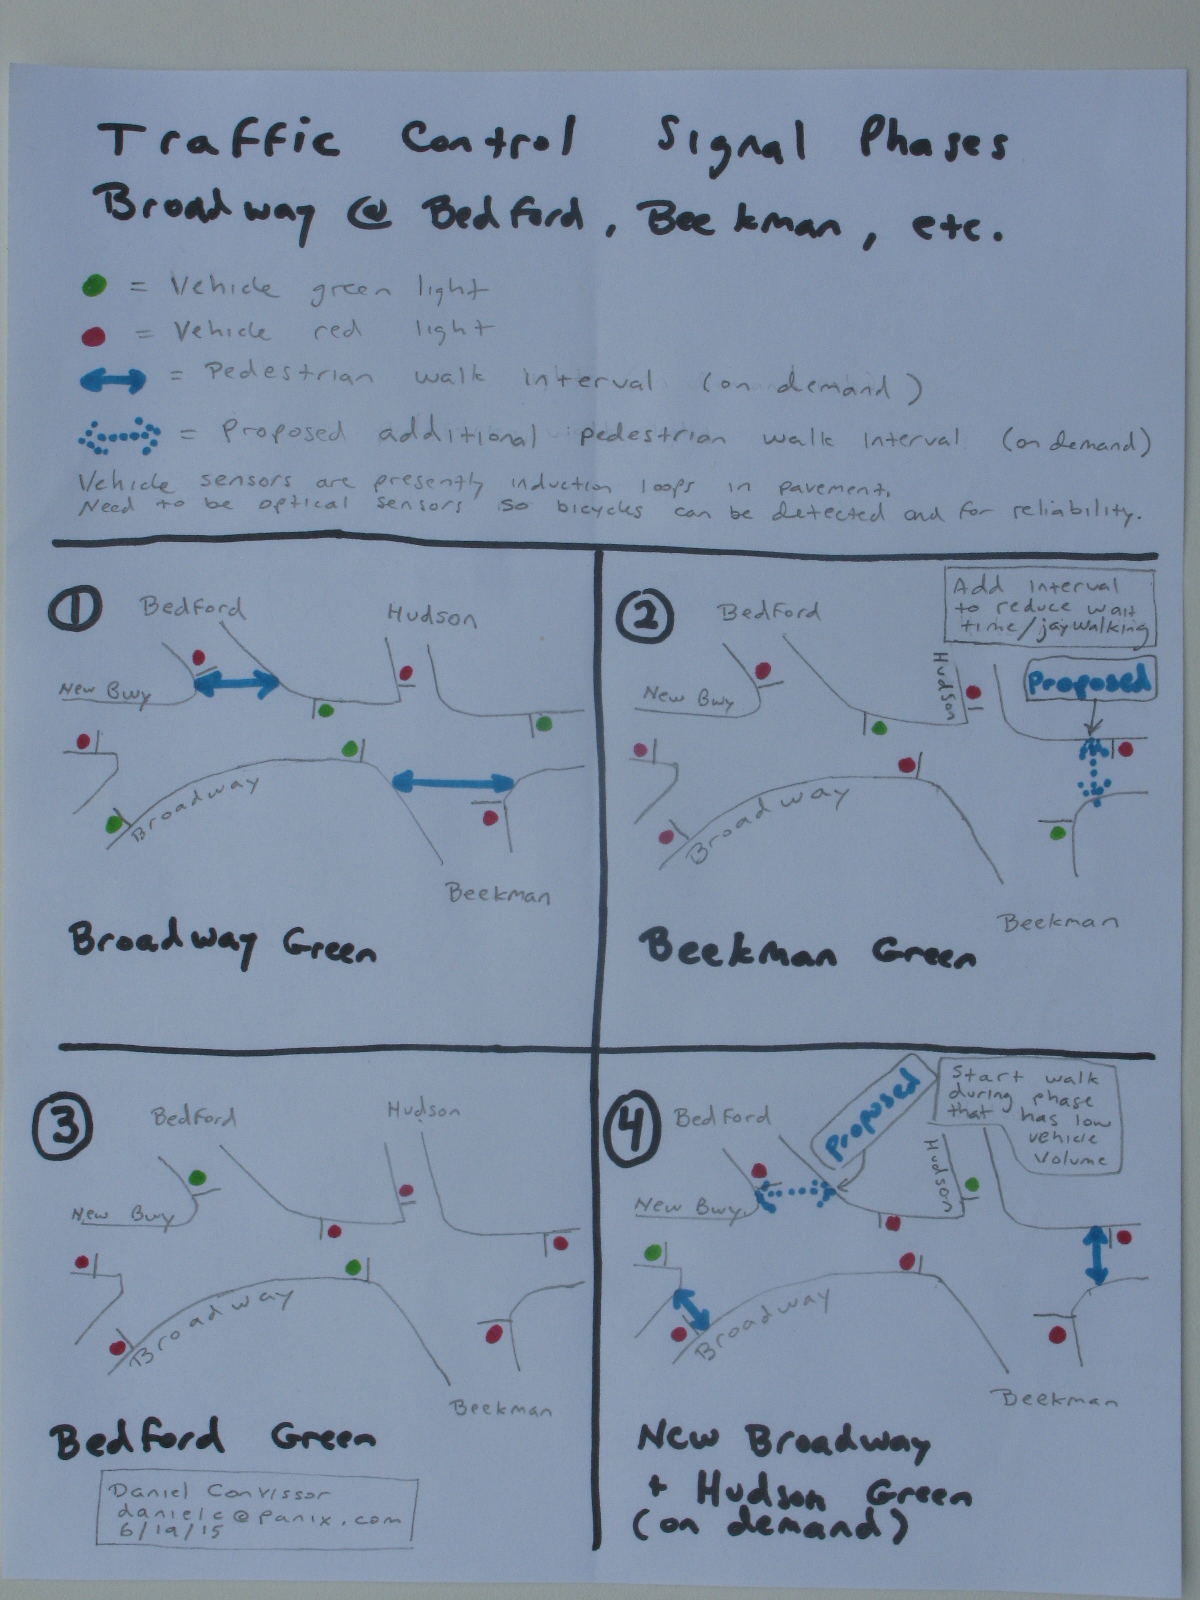 Traffic Control Signal Phases
Broadway @ Bedford, Beekman, etc.
= Vehicle green light
= Vehicle red light
= Pedestrian walk interval (on demand)
= Proposed additional pedestrian walk interval (on demand)
Vehicle sensors are presently induction loops in pavement.
Need to be optical sensors so bicycles can be detected and for reliability.
1
Bedford
Hudson
New Bwy
Broadway
Beekman
Broadway Green
2
Bedford
Add interval
to reduce wait
time/jaywalking
Hudson
Proposed
New Bwy
Broadway
Beekman
Beekman Green
3
Bedford
Hudson
New Bwy
Broadway
Beekman
Bedford Green
Daniel Convissor
danielc@panix.com
6/19/15
4
Bedford
Proposed
Start walk
during phase
that has low
vehicle
volume
Hudson
New Bwy.
Broadway
Beekman
New Broadway
+ Hudson Green
(on demand)